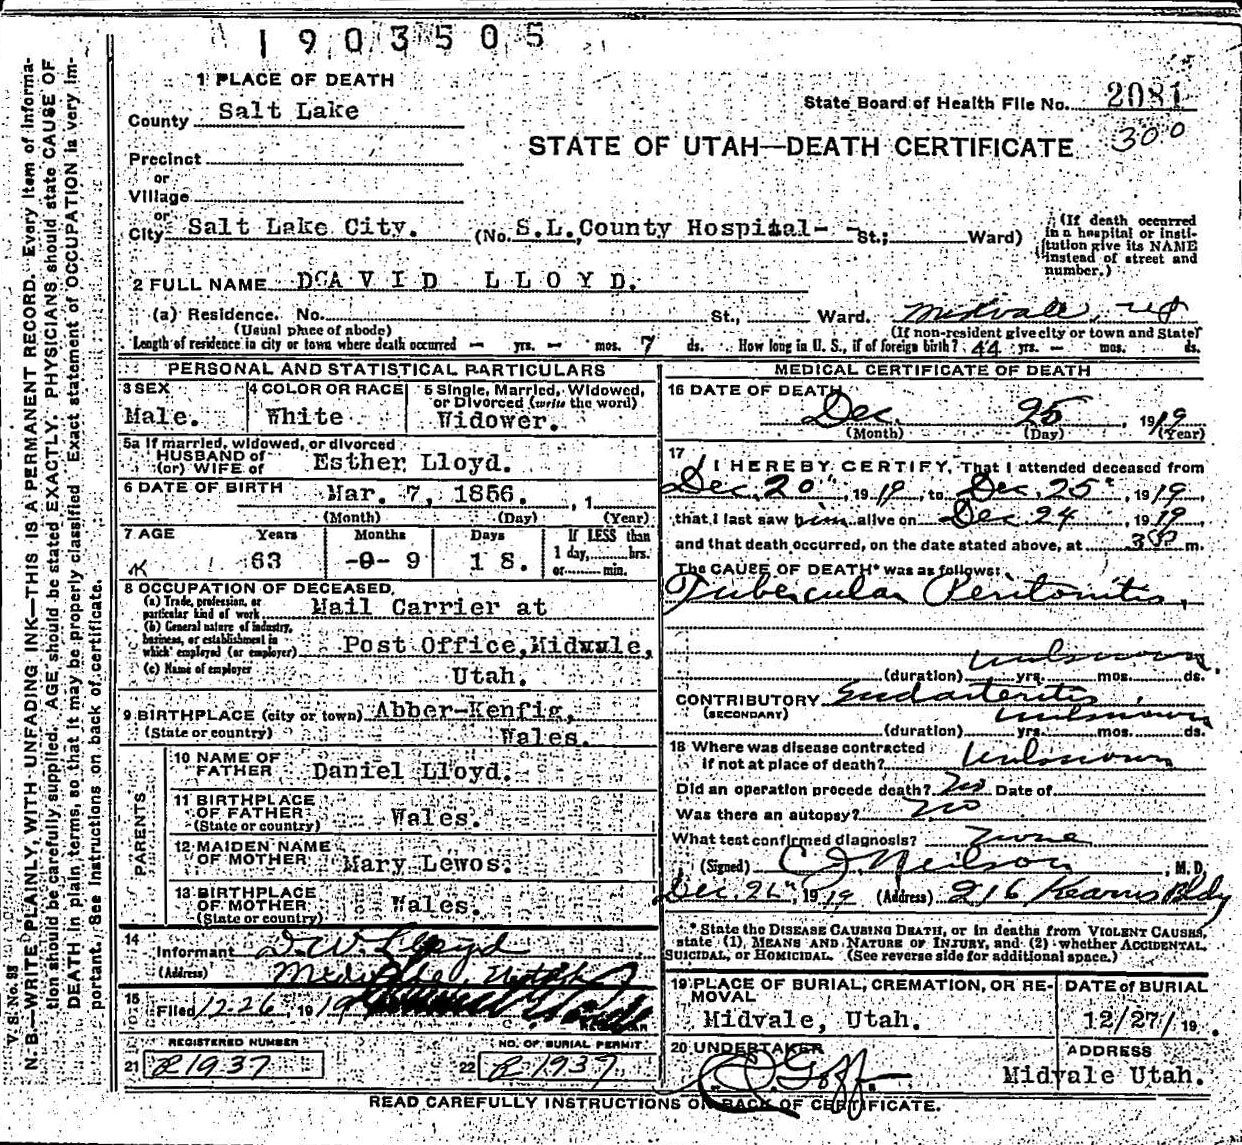 1903505
1 PLACE OF DEATH
County Salt Lake
State Board of Health File No. 2081
300
STATE OF UTAH—DEATH CERTIFICATE
Precinct
or
Village
or
City Salt Lake City. (No. S.L. County Hospital- - St.; Ward)
(If death occurred in a hospital or institution give its NAME instead of street and number.)
2 FULL NAME DAVID LLOYD.
(a) Residence. No. St., Ward. Midvale, Ut
(Usual place of abode) (If non-resident give city or town and State)
Length of residence in city or town where death occurred — yrs. — mos. 7 ds. How long in U. S., if of foreign birth? 44 yrs. — mos. ds.
PERSONAL AND STATISTICAL PARTICULARS
3 SEX Male.
4 COLOR OR RACE White
5 Single, Married, Widowed, or Divorced (write the word) Widower.
5a If married, widowed, or divorced
HUSBAND of
(or) WIFE of Esther Lloyd.
6 DATE OF BIRTH Mar. 7, 1856. , 1
(Month) (Day) (Year)
7 AGE Years Months Days If LESS than
63 -0- 9 18. 1 day, hrs.
or min.
8 OCCUPATION OF DECEASED
(a) Trade, profession, or particular kind of work Mail Carrier at
(b) General nature of industry, business, or establishment in which employed (or employer) Post Office, Midvale,
(c) Name of employer Utah.
9 BIRTHPLACE (city or town) Abber-Kenfig,
(State or country) Wales.
PARENTS
10 NAME OF FATHER Daniel Lloyd.
11 BIRTHPLACE OF FATHER (State or country) Wales.
12 MAIDEN NAME OF MOTHER Mary Lewos.
13 BIRTHPLACE OF MOTHER (State or country) Wales.
14 Informant D.W. Lloyd
(Address) Midvale, Utah
15 Filed 12-26, 1919
REGISTERED NUMBER
21 R1937
NO. OF BURIAL PERMIT
22 R1937
MEDICAL CERTIFICATE OF DEATH
16 DATE OF DEATH
Dec. 25, 1919
(Month) (Day) (Year)
17 I HEREBY CERTIFY, That I attended deceased from
Dec. 20", 1919, to Dec. 25", 1919,
that I last saw him alive on Dec 24 1919,
and that death occurred, on the date stated above, at m.
The CAUSE OF DEATH* was as follows:
Tubercular Peritonitis,
unknown
(duration) yrs. mos. ds.
CONTRIBUTORY Endarteritis
(SECONDARY) unknown
(duration) yrs. mos. ds.
18 Where was disease contracted
if not at place of death? Unknown
Did an operation precede death? No Date of
Was there an autopsy? No
What test confirmed diagnosis? None
(Signed) C J Neilson, M. D.
Dec. 26", 1919 (Address) 216 Kearns Bldg
* State the DISEASE CAUSING DEATH, or in deaths from VIOLENT CAUSES,
state (1), MEANS AND NATURE OF INJURY, and (2) whether ACCIDENTAL,
SUICIDAL, or HOMICIDAL. (See reverse side for additional space.)
19 PLACE OF BURIAL, CREMATION, OR REMOVAL
Midvale, Utah.
DATE of BURIAL
12/27/19
20 UNDERTAKER
Goff.
ADDRESS
Midvale Utah.
READ CAREFULLY INSTRUCTIONS ON BACK OF CERTIFICATE.
V. S. No. 88
N. B.—WRITE PLAINLY, WITH UNFADING INK—THIS IS A PERMANENT RECORD. Every item of information should be carefully supplied. AGE should be stated EXACTLY. PHYSICIANS should state CAUSE OF DEATH in plain terms, so that it may be properly classified. Exact statement of OCCUPATION is very important. See Instructions on back of certificate.